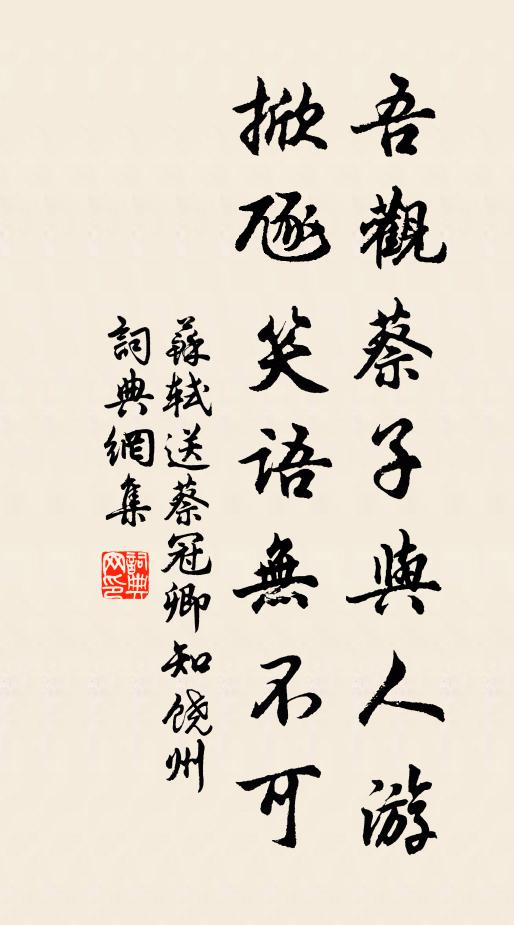 吾觀蔡子與人游
掀豗笑語無不可
蘇軾送蔡冠卿知饶州
詞典網集
詞典网印